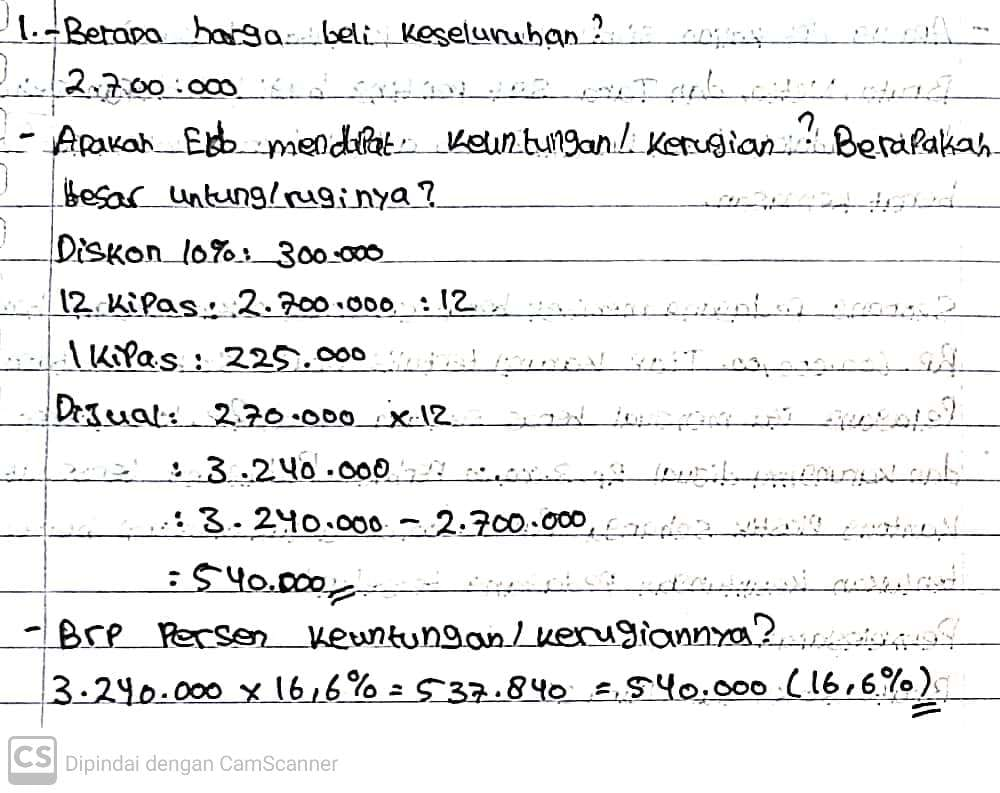 1. - Berapa harga beli keseluruhan?
2.700.000
- Apakah Ebb mendapat keuntungan/kerugian? Berapakah
besar untung/ruginya?
Diskon 10%: 300.000
12 Kipas: 2.700.000 : 12
1 Kipas : 225.000
Dijual: 270.000 x 12
: 3.240.000
: 3.240.000 - 2.700.000
= 540.000
- Brp Persen keuntungan/kerugiannya?
3.240.000 x 16,6% = 537.840 = 540.000 (16,6%)
CS Dipindai dengan CamScanner